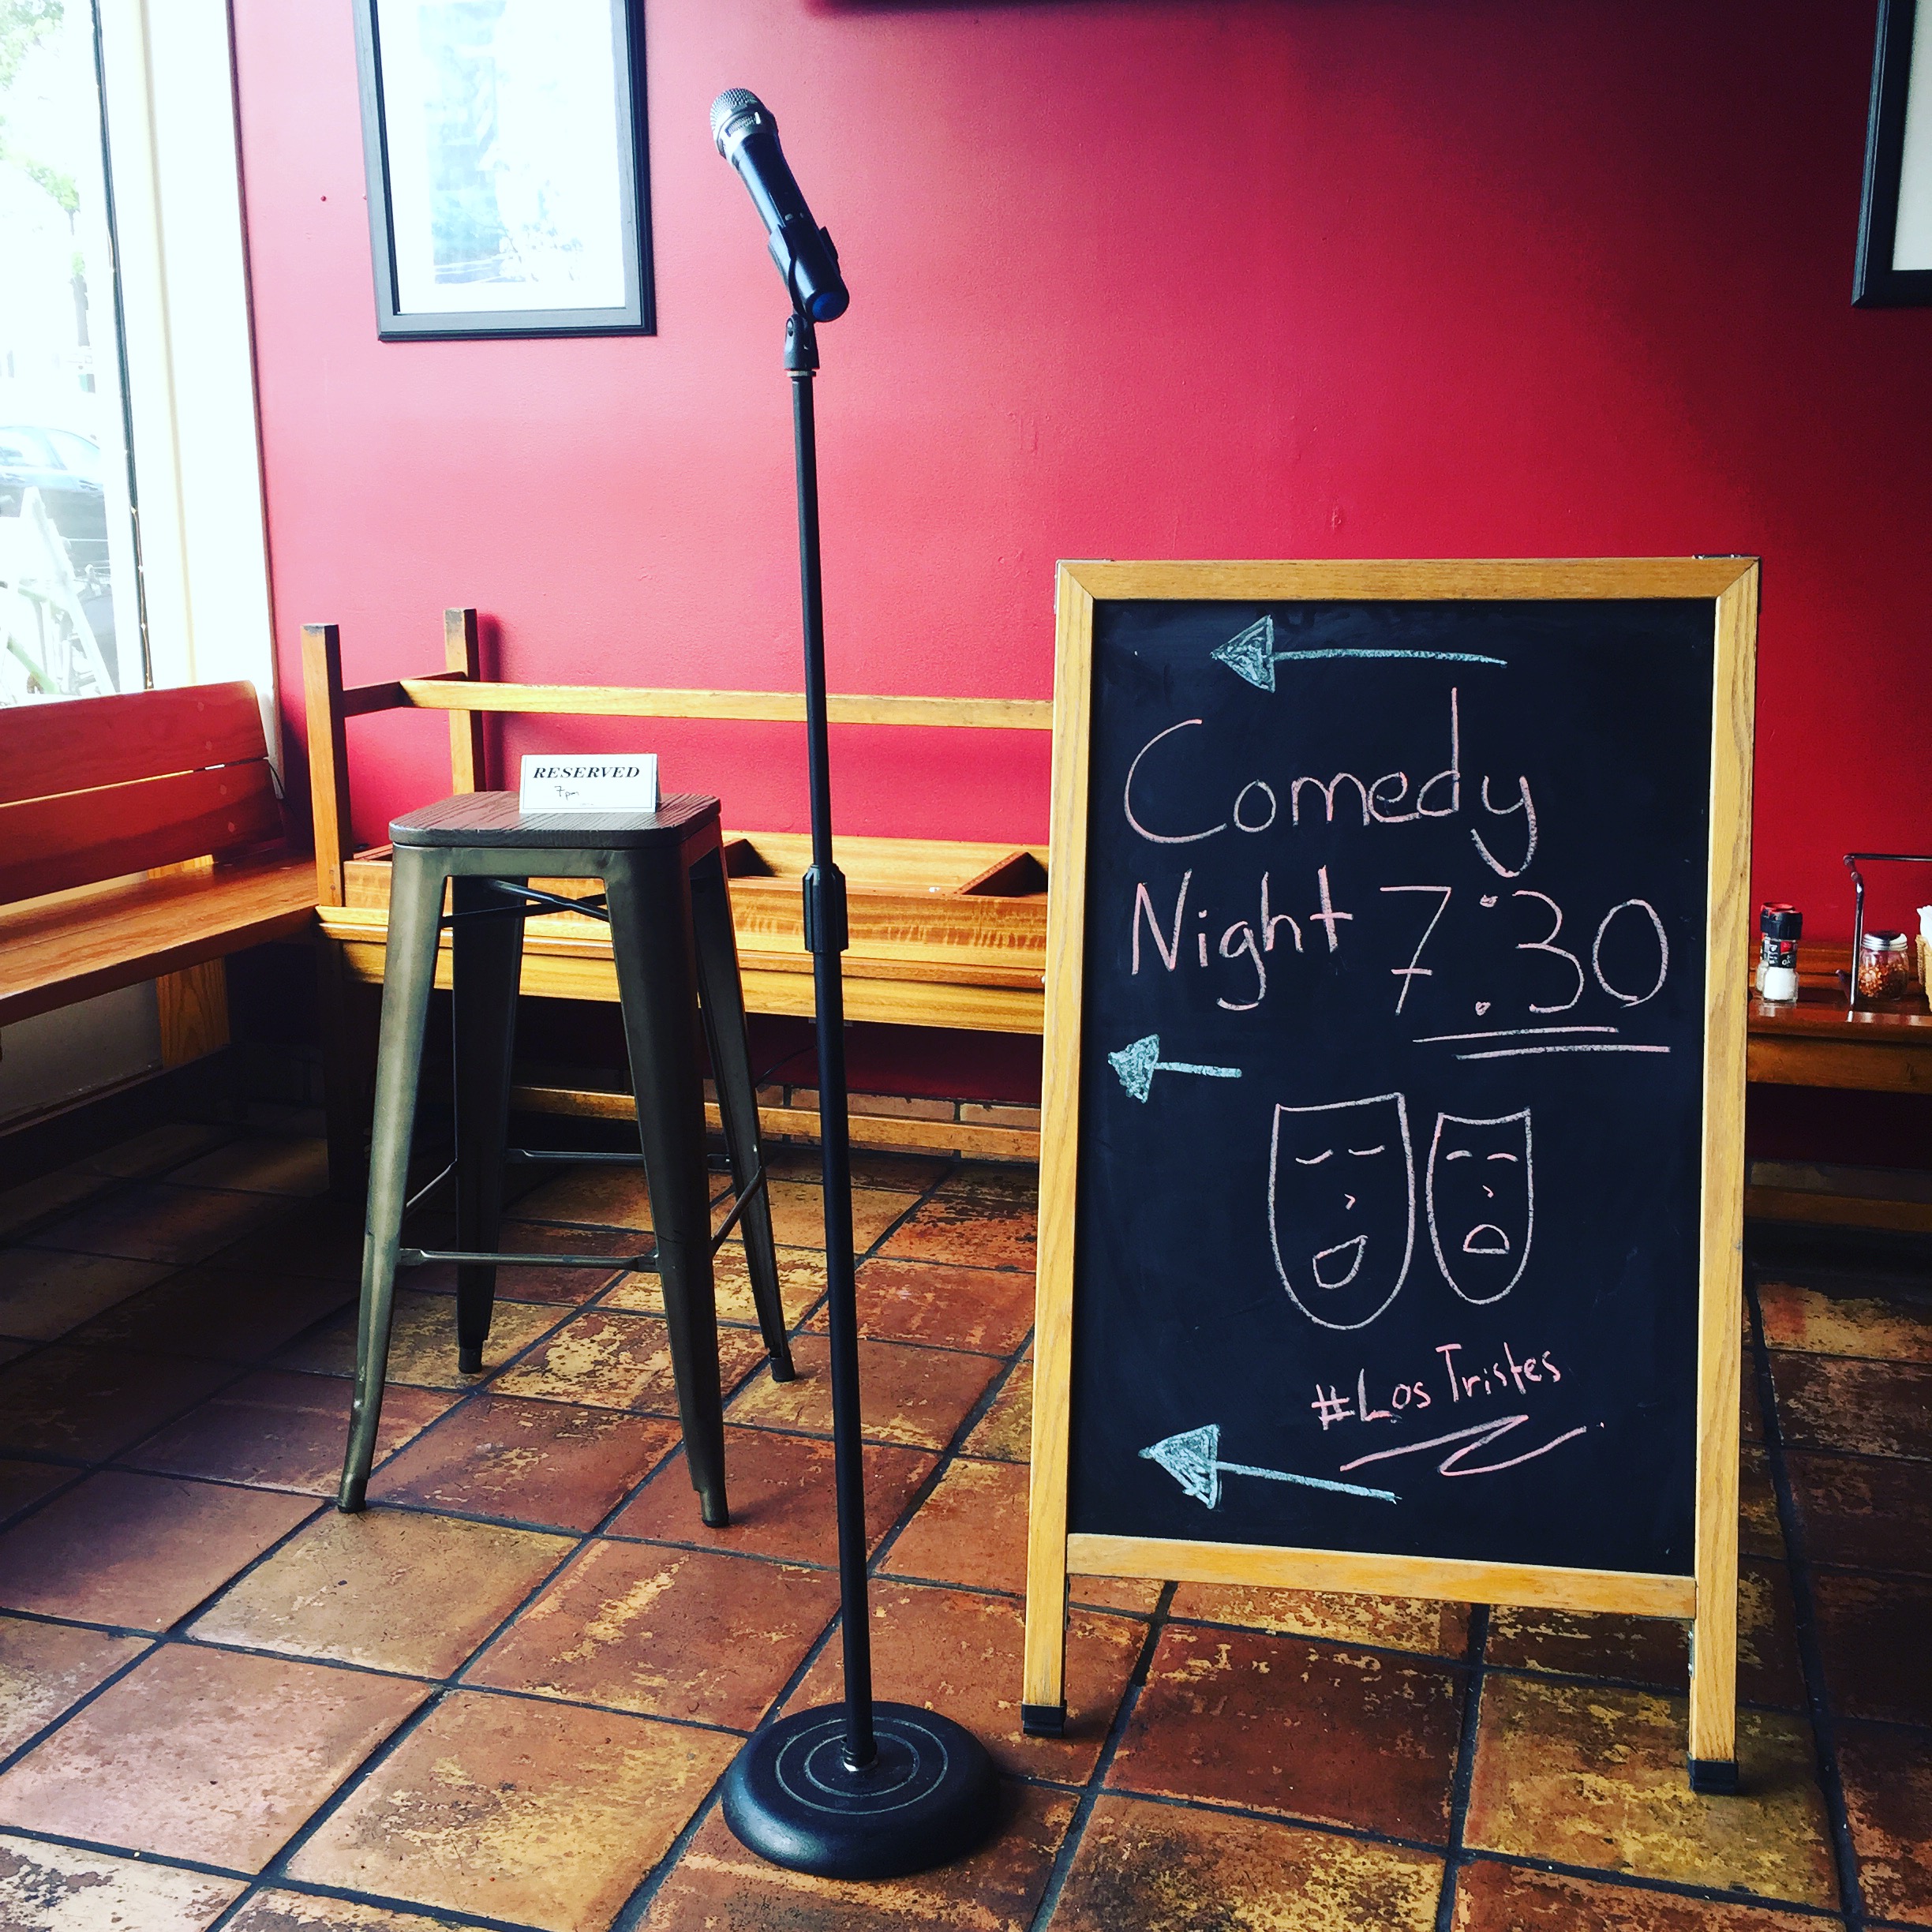 RESERVED
7pm
Comedy
Night 7:30
#Los Tristes